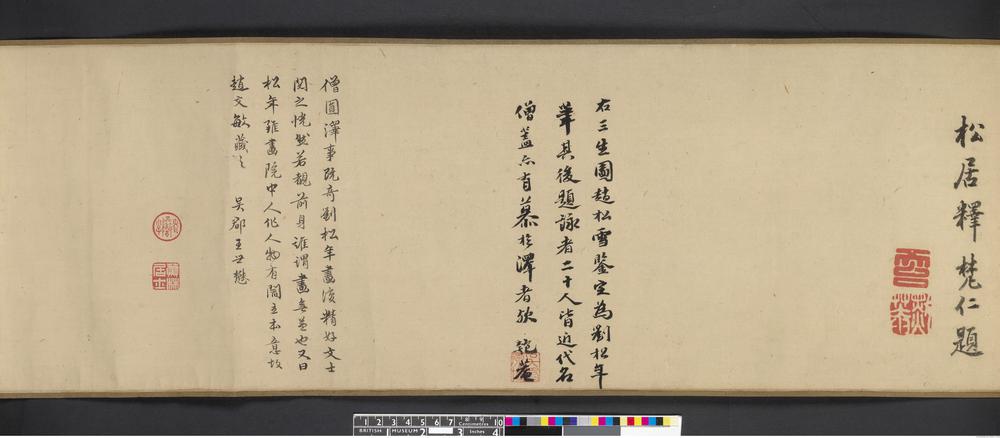 松居釋梵仁題
右三生圖趙松雪鑒定為劉松年
筆其後題詠者二十人皆近代名
僧蓋亦有慕於澤者歟 匏菴
僧圓澤事既奇劉松年畫復精好文士
閱之恍然若覩前身誰謂畫無益也又曰
松年雖畫院中人作人物有閻立本意故
趙文敏藏之 吳郡王世懋
1 2 3 4 5 6 7 8 9 10
Centimetres
BRITISH MUSEUM
2 3 Inches 4